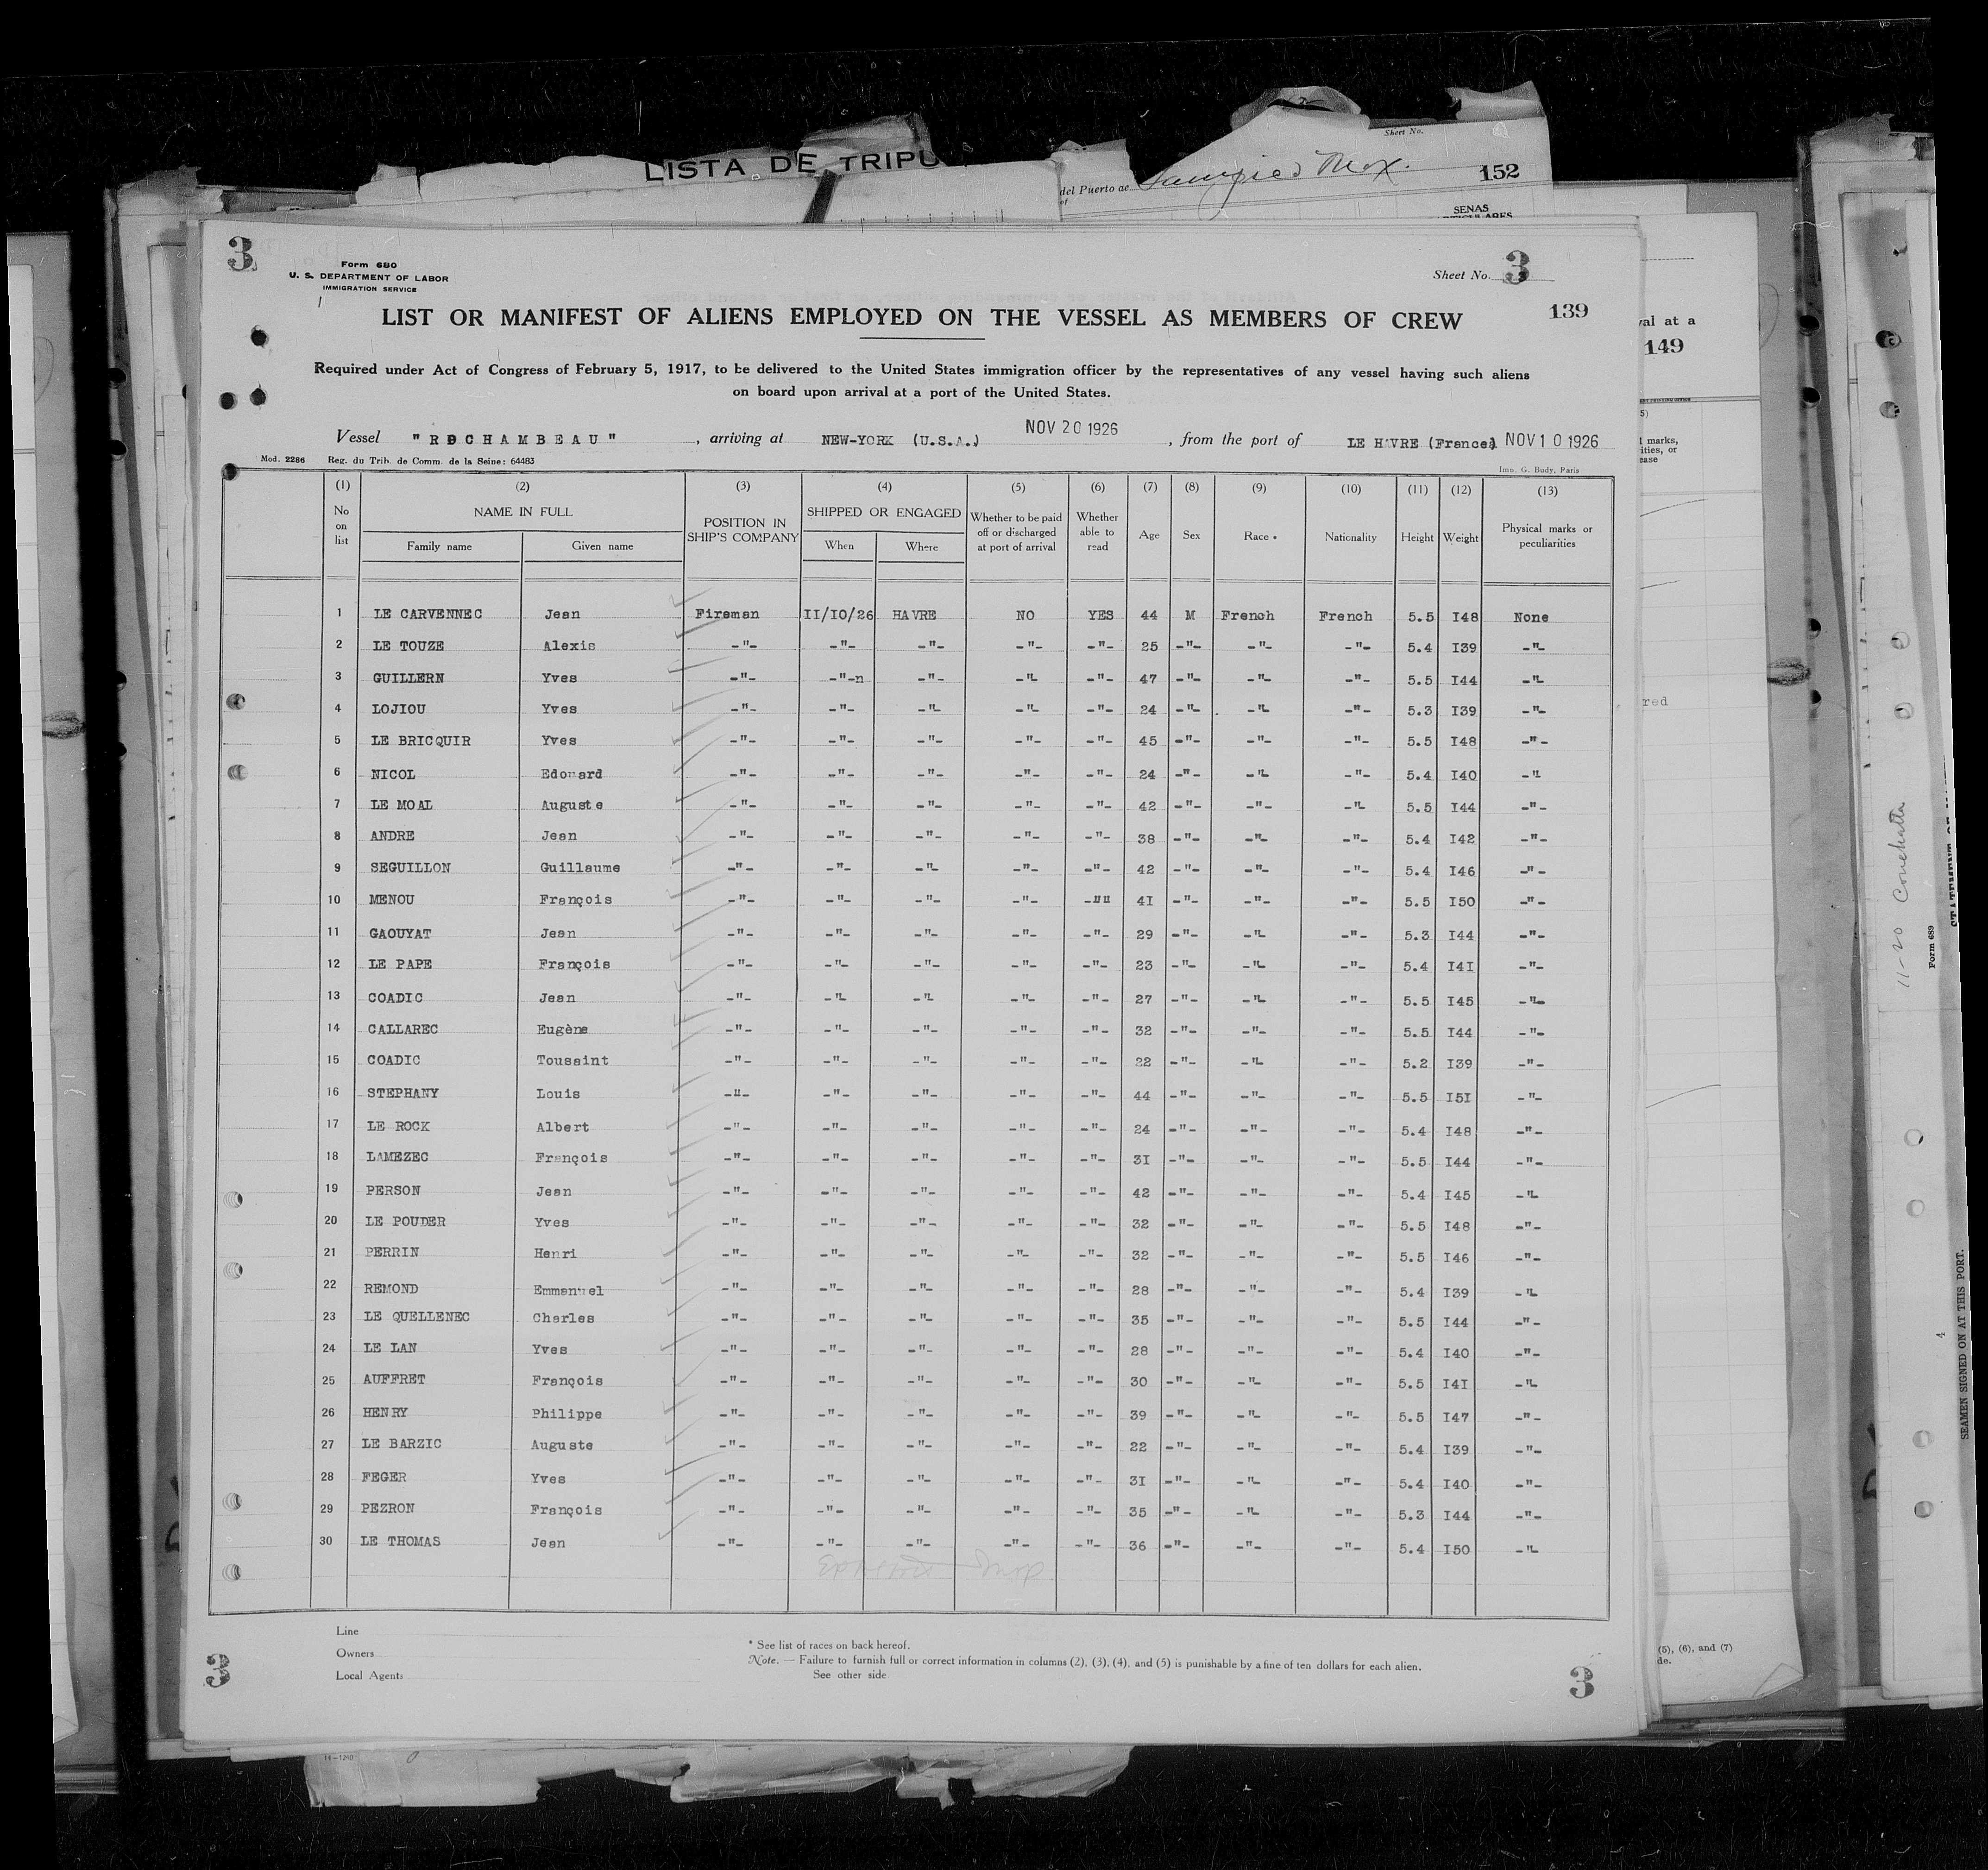 LISTA DE TRIPU
Sheet No.
del Puerto de
of
152
SENAS
3
Form 680
U. S. DEPARTMENT OF LABOR
IMMIGRATION SERVICE
Sheet No. 3
139
LIST OR MANIFEST OF ALIENS EMPLOYED ON THE VESSEL AS MEMBERS OF CREW
Required under Act of Congress of February 5, 1917, to be delivered to the United States immigration officer by the representatives of any vessel having such aliens
on board upon arrival at a port of the United States.
Vessel "ROCHAMBEAU", arriving at NEW-YORK (U.S.A.) NOV 20 1926, from the port of LE HAVRE (France) NOV 10 1926
Mod. 2286 Reg. du Trib. de Comm. de la Seine: 64483
Imp. G. Body, Paris
(1) (2) (3) (4) (5) (6) (7) (8) (9) (10) (11) (12) (13)
No on list NAME IN FULL Family name Given name POSITION IN SHIP'S COMPANY SHIPPED OR ENGAGED When Where Whether to be paid off or discharged at port of arrival Whether able to read Age Sex Race * Nationality Height Weight Physical marks or peculiarities
1 LE CARVENNEC Jean Fireman II/IO/26 HAVRE NO YES 44 M French French 5.5 I48 None
2 LE TOUZE Alexis -"- -"- -"- -"- -"- 25 -"- -"- -"- 5.4 I39 -"-
3 GUILLERN Yves -"- -"-n -"- -"- -"- 47 -"- -"- -"- 5.5 I44 -"-
4 LOJIOU Yves -"- -"- -"- -"- -"- 24 -"- -"- -"- 5.3 I39 -"-
5 LE BRICQUIR Yves -"- -"- -"- -"- -"- 45 -"- -"- -"- 5.5 I48 -"-
6 NICOL Edouard -"- -"- -"- -"- -"- 24 -"- -"- -"- 5.4 I40 -"-
7 LE MOAL Auguste -"- -"- -"- -"- -"- 42 -"- -"- -"- 5.5 I44 -"-
8 ANDRE Jean -"- -"- -"- -"- -"- 38 -"- -"- -"- 5.4 I42 -"-
9 SEGUILLON Guillaume -"- -"- -"- -"- -"- 42 -"- -"- -"- 5.4 I46 -"-
10 MENOU François -"- -"- -"- -"- -"" 4I -"- -"- -"- 5.5 I50 -"-
11 GAOUYAT Jean -"- -"- -"- -"- -"- 29 -"- -"- -"- 5.3 I44 -"-
12 LE PAPE François -"- -"- -"- -"- -"- 23 -"- -"- -"- 5.4 I4I -"-
13 COADIC Jean -"- -"- -"- -"- -"- 27 -"- -"- -"- 5.5 I45 -"-
14 CALLAREC Eugène -"- -"- -"- -"- -"- 32 -"- -"- -"- 5.5 I44 -"-
15 COADIC Toussaint -"- -"- -"- -"- -"- 22 -"- -"- -"- 5.2 I39 -"-
16 STEPHANY Louis -"- -"- -"- -"- -"- 44 -"- -"- -"- 5.5 I5I -"-
17 LE ROCK Albert -"- -"- -"- -"- -"- 24 -"- -"- -"- 5.4 I48 -"-
18 LAMEZEC François -"- -"- -"- -"- -"- 3I -"- -"- -"- 5.5 I44 -"-
19 PERSON Jean -"- -"- -"- -"- -"- 42 -"- -"- -"- 5.4 I45 -"-
20 LE POUDER Yves -"- -"- -"- -"- -"- 32 -"- -"- -"- 5.5 I48 -"-
21 PERRIN Henri -"- -"- -"- -"- -"- 32 -"- -"- -"- 5.5 I46 -"-
22 REMOND Emmanuel -"- -"- -"- -"- -"- 28 -"- -"- -"- 5.4 I39 -"-
23 LE QUELLENEC Charles -"- -"- -"- -"- -"- 35 -"- -"- -"- 5.5 I44 -"-
24 LE LAN Yves -"- -"- -"- -"- -"- 28 -"- -"- -"- 5.4 I40 -"-
25 AUFFRET François -"- -"- -"- -"- -"- 30 -"- -"- -"- 5.5 I4I -"-
26 HENRY Philippe -"- -"- -"- -"- -"- 39 -"- -"- -"- 5.5 I47 -"-
27 LE BARZIC Auguste -"- -"- -"- -"- -"- 22 -"- -"- -"- 5.4 I39 -"-
28 FEGER Yves -"- -"- -"- -"- -"- 3I -"- -"- -"- 5.4 I40 -"-
29 PEZRON François -"- -"- -"- -"- -"- 35 -"- -"- -"- 5.3 I44 -"-
30 LE THOMAS Jean -"- -"- -"- -"- -"- 36 -"- -"- -"- 5.4 I50 -"-
Line
Owners
Local Agents
* See list of races on back hereof.
Note. — Failure to furnish full or correct information in columns (2), (3), (4), and (5) is punishable by a fine of ten dollars for each alien.
See other side
3
3
14-1240
val at a
149
marks,
ities, or
ease
red
(5), (6), and (7)
de.
Form 689
SEAMEN SIGNED ON AT THIS PORT.
4